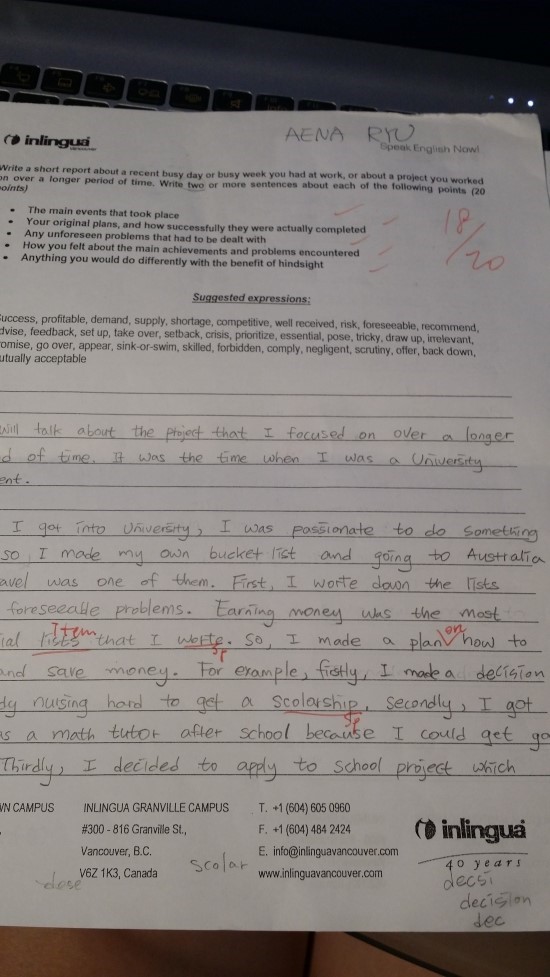 AENA RYU
inlingua
VANCOUVER
Speak English Now!
Write a short report about a recent busy day or busy week you had at work, or about a project you worked
on over a longer period of time. Write two or more sentences about each of the following points (20
points)
• The main events that took place
• Your original plans, and how successfully they were actually completed
• Any unforeseen problems that had to be dealt with
• How you felt about the main achievements and problems encountered
• Anything you would do differently with the benefit of hindsight
18/20
Suggested expressions:
uccess, profitable, demand, supply, shortage, competitive, well received, risk, foreseeable, recommend,
dvise, feedback, set up, take over, setback, crisis, prioritize, essential, pose, tricky, draw up, irrelevant,
omise, go over, appear, sink-or-swim, skilled, forbidden, comply, negligent, scrutiny, offer, back down,
utually acceptable
will talk about the project that I focused on over a longer
d of time. It was the time when I was a University
ent.
I got into University, I was passionate to do something
so I made my own bucket list and going to Australia
avel was one of them. First, I worte down the lists
foreseeable problems. Earning money was the most
Item on
ial lists that I worte. So, I made a plan how to
sp
and save money. For example, firstly, I made a decision
dy nursing hard to get a scolarship, secondly, I got
sp
as a math tutor after school because I could get go
Thirdly, I decided to apply to school project which
WN CAMPUS
INLINGUA GRANVILLE CAMPUS
#300 - 816 Granville St.,
Vancouver, B.C.
V6Z 1K3, Canada
T. +1 (604) 605 0960
F. +1 (604) 484 2424
E. info@inlinguavancouver.com
www.inlinguavancouver.com
inlingua
40 years
scolar
dose
decsi
decision
dec